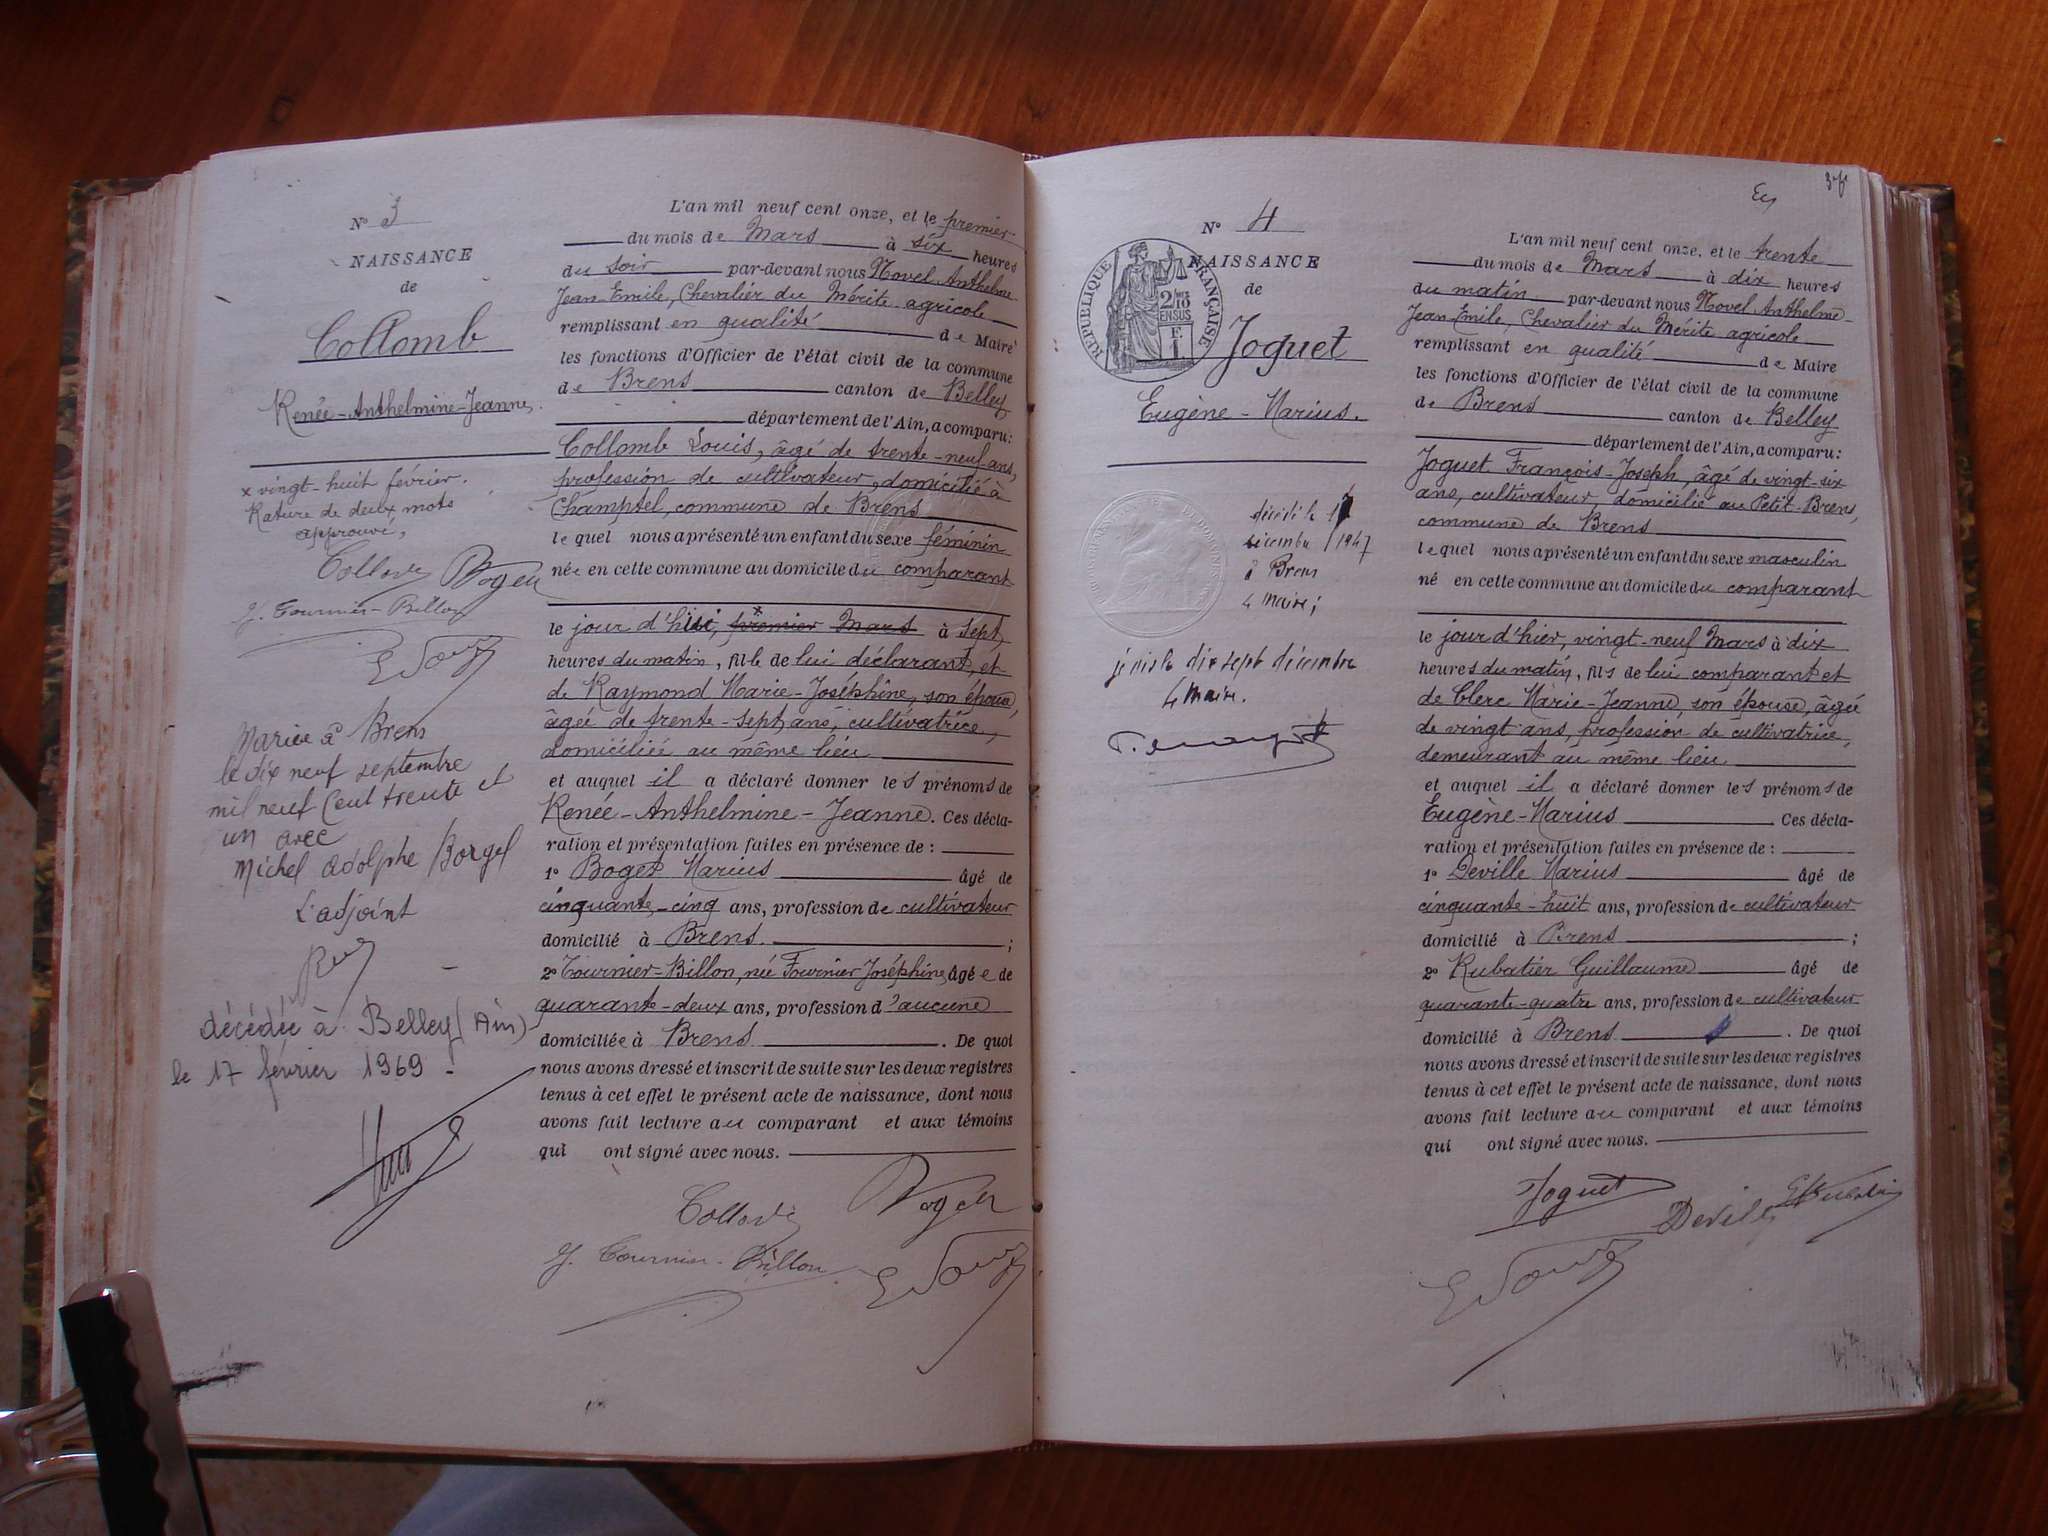 N° 3
NAISSANCE
de
Collomb
Renée-Anthelmine-Jeanne
x vingt-huit février.
Rature de deux mots
approuvé,
J. Tournier-Billon
Mariée à Brens
le dix neuf septembre
mil neuf cent trente et
un avec
Michel Adolphe Borgel
L'adjoint
décédée à Belley (Ain)
le 17 février 1969 -
L'an mil neuf cent onze, et le premier
du mois de Mars à six heures
du soir par-devant nous Novel Anthelme
Jean Emile, Chevalier du Mérite agricole
remplissant en qualité de Maire
les fonctions d'Officier de l'état civil de la commune
de Brens canton de Belley
département de l'Ain, a comparu:
Collomb Louis, âgé de trente-neuf ans,
profession de cultivateur, domicilié à
Champtel, commune de Brens
lequel nous a présenté un enfant du sexe féminin
née en cette commune au domicile du comparant
le jour d'hier, premier Mars à sept
heures du matin, fille de lui déclarant, et
de Raymond Marie-Joséphine, son épouse,
âgée de trente-sept ans, cultivatrice,
domiciliée au même lieu
et auquel il a déclaré donner les prénoms de
Renée-Anthelmine-Jeanne. Ces décla-
ration et présentation faites en présence de :
1° Boget Marius âgé de
cinquante-cinq ans, profession de cultivateur
domicilié à Brens ;
2° Tournier-Billon, née Fournier Joséphine, âgée de
quarante-deux ans, profession d'aucune
domiciliée à Brens . De quoi
nous avons dressé et inscrit de suite sur les deux registres
tenus à cet effet le présent acte de naissance, dont nous
avons fait lecture au comparant et aux témoins
qui ont signé avec nous.
J. Tournier-Billon
N° 4
NAISSANCE
de
RÉPUBLIQUE FRANÇAISE
Joguet
Eugène-Marius.
décédé le 17
décembre 1947
à Brens
le maire;
dix sept décembre
le maire.
L'an mil neuf cent onze, et le trente
du mois de Mars à dix heures
du matin par-devant nous Novel Anthelme
Jean-Emile, Chevalier du Mérite agricole
remplissant en qualité de Maire
les fonctions d'Officier de l'état civil de la commune
de Brens canton de Belley
département de l'Ain, a comparu:
Joguet François-Joseph, âgé de vingt-six
ans, cultivateur, domicilié au Petit-Brens,
commune de Brens
lequel nous a présenté un enfant du sexe masculin
né en cette commune au domicile du comparant
le jour d'hier, vingt-neuf Mars à dix
heures du matin, fils de lui comparant et
de Clerc Marie-Jeanne, son épouse, âgée
de vingt ans, profession de cultivatrice,
demeurant au même lieu
et auquel il a déclaré donner les prénoms de
Eugène-Marius . Ces décla-
ration et présentation faites en présence de :
1° Deville Marius âgé de
cinquante-huit ans, profession de cultivateur
domicilié à Brens ;
2° Rubatier Guillaume âgé de
quarante-quatre ans, profession de cultivateur
domicilié à Brens . De quoi
nous avons dressé et inscrit de suite sur les deux registres
tenus à cet effet le présent acte de naissance, dont nous
avons fait lecture au comparant et aux témoins
qui ont signé avec nous.
Joguet